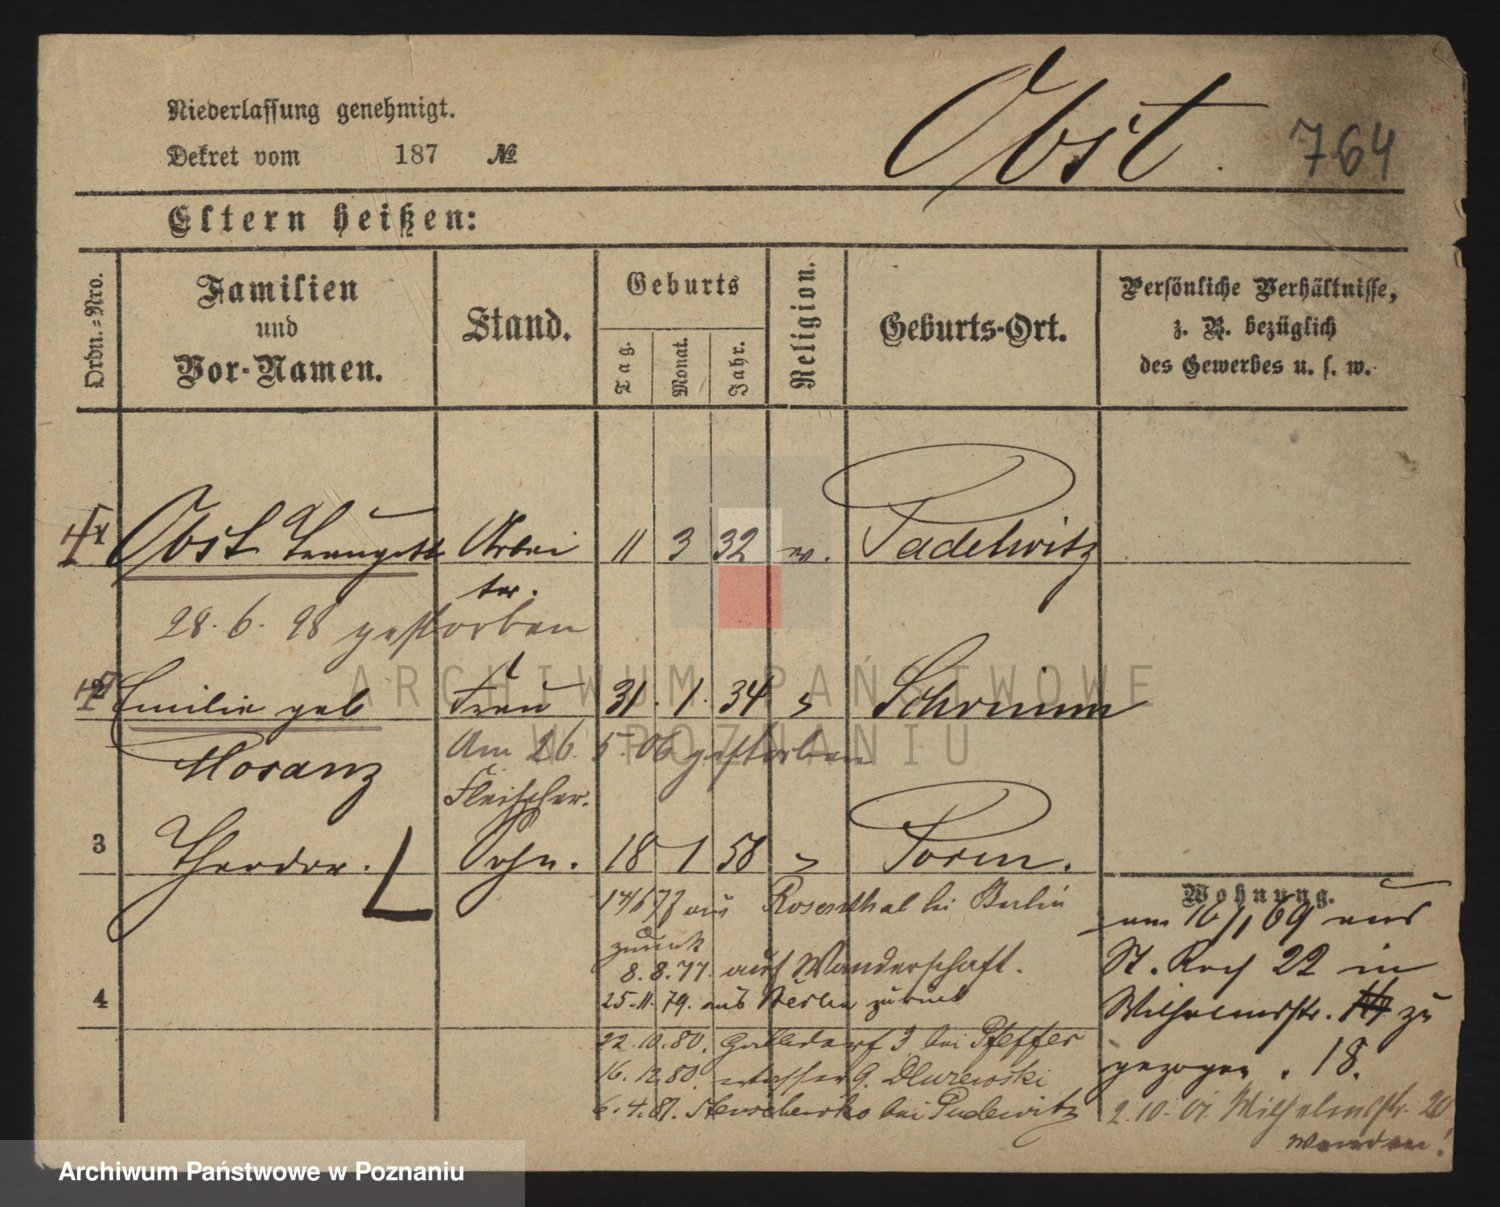 Niederlassung genehmigt.
Dekret vom 187 №
Obst. 764
Eltern heißen:
Ordn.=Nro.
Familien und Vor-Namen.
Stand.
Geburts
Tag. Monat. Jahr.
Religion.
Geburts-Ort.
Persönliche Verhältnisse,
z. B. bezüglich
des Gewerbes u. s. w.
1 Obst Traugott Arbei 11 3 32 ev. Pudelwitz
ter.
28. 6. 98 gestorben
2 Emilie geb Frau 31. 1. 34 Schrimm
Moranz Am 26. 5. 06 gestorben
Fleischer.
3 Theodor. Sohn. 18 1 58 Posen.
Wohnung.
aus Rosenthal bei Berlin
zurück
8. 8. 77. auf Wanderschaft.
25. 11. 79. aus Berlin zurück
4
22. 10. 80. 3 bei Pfeffer
16. 12. 80. 9. Dluzewski
6. 4. 81. bei Pudewitz
am 16/1 69 aus
St. Roch 22 in
Wilhelmstr. zu
gezogen. 18.
2. 10. 01. Wilhelmstr. 20
Wenden!
ARCHIWUM PAŃSTWOWE
W POZNANIU
Archiwum Państwowe w Poznaniu